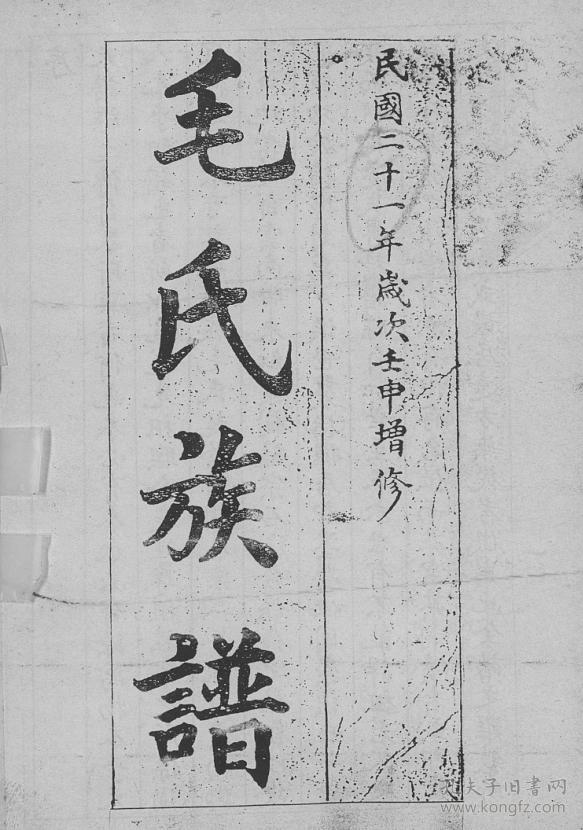 民國二十一年歲次壬申增修
毛氏族譜
孔夫子旧书网
www.kongfz.com